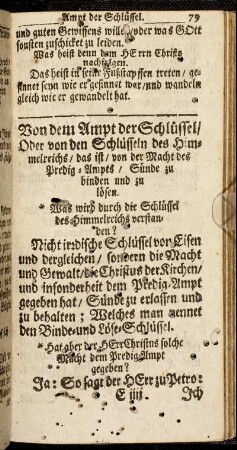 Ampt der Schlüssel. 79
und guten Gewissens wille oder was GOtt
sonsten zuschicket zu leiden.
Was heist denn dem HErrn Christo
nachfolgen.
Das heist in seine Fußstapffen treten / ge-
sinnet seyn wie er gesinnet war / und wandeln
gleich wie er gewandelt hat.
Von dem Ampt der Schlüssel /
Oder von den Schlüsseln des Him-
melreichs / das ist / von der Macht des
Predig-Ampts / Sünde zu
binden und zu
lösen.
* Was wird durch die Schlüssel
des Himmelreichs verstan-
den?
Nicht irrdische Schlüssel von Eisen
und dergleichen / sondern die Macht
und Gewalt / die Christus der Kirchen /
und insonderheit dem Predig-Ampt
gegeben hat / Sünde zu erlassen und
zu behalten ; Welches man nennet
den Binde- und Löse-Schlüssel.
* Hat aber der HErr Christus solche
Macht dem Predig-Ampt
gegeben?
Ja: So sagt der HErr zu Petro:
E iiij Ich